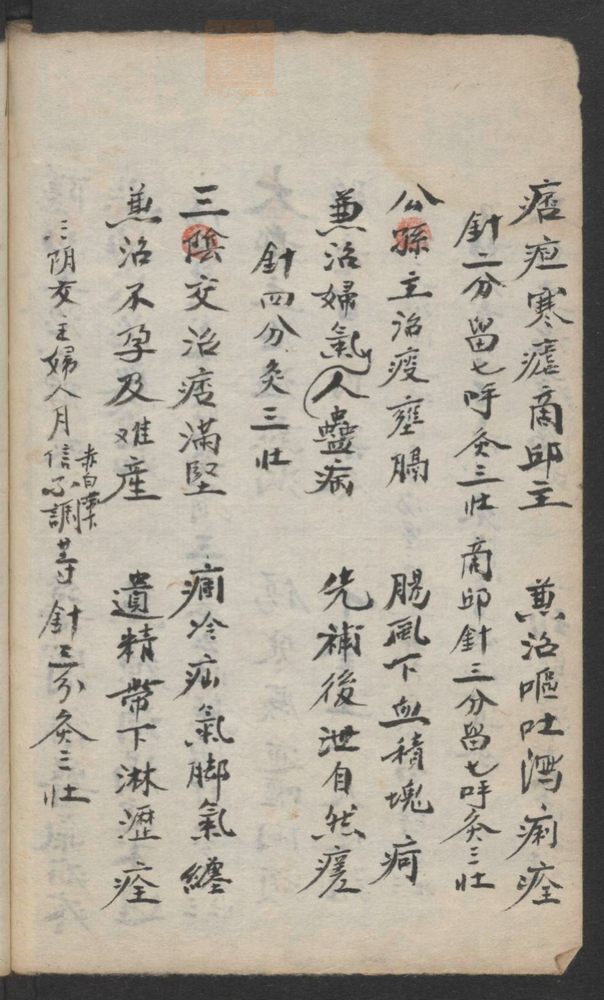 痞疸寒瘧商邱主　兼治嘔吐瀉痢痊
針二分留七呼灸三壯　商邱針三分留七呼灸三壯
公孫主治痰壅膈　腸風下血積塊疴
兼治婦人氣蠱病　先補後泄自然瘥
針四分灸三壯
三陰交治痞滿堅　痼冷疝氣脚氣纏
兼治不孕及难産　遺精帶下淋瀝痊
三阴交主婦人月信不調赤白帶下等　針三分灸三壯